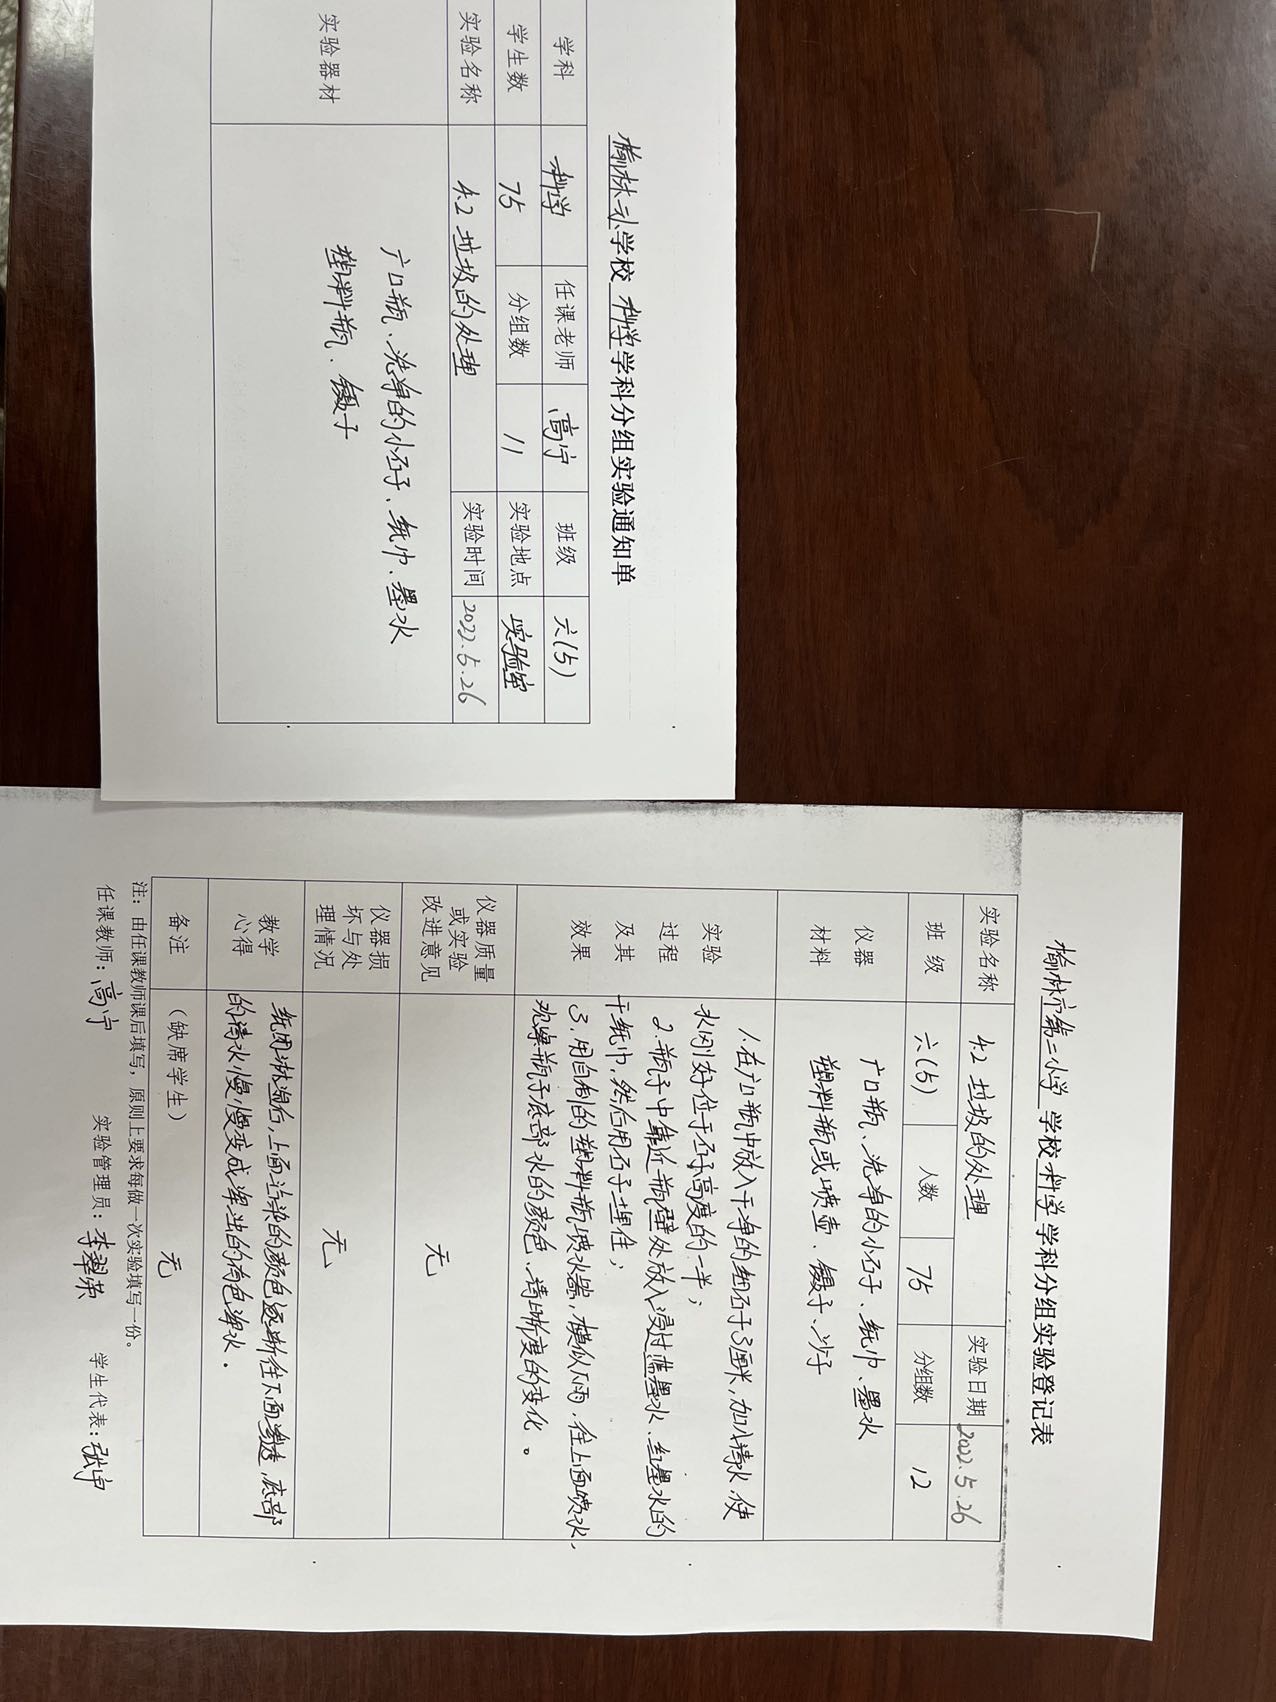 榆林二小学校 科学 学科分组实验通知单
学科 科学 任课老师 高宁 班级 六(5)
学生数 75 分组数 11 实验地点 实验室
实验名称 4.2 垃圾的处理 实验时间 2022.5.26
实验器材
广口瓶、洗净的小石子、纸巾、墨水
塑料瓶、镊子
榆林市第二小学 学校 科学 学科分组实验登记表
实验名称 4.2 垃圾的处理 实验日期 2022.5.26
班级 六(5) 人数 75 分组数 12
仪器
材料
广口瓶、洗净的小石子、纸巾、墨水
塑料瓶或喷壶、镊子、沙子
实验
过程
及其
效果
1.在广口瓶中放入干净的细石子3厘米,加入清水,使
水刚好位于石子高度的一半;
2.瓶子中靠近瓶壁处放入浸过蓝墨水、红墨水的
干纸巾,然后用石子埋住;
3.用自制的塑料瓶喷水器,模似下雨,往上面喷水,
观察瓶子底部水的颜色、清晰度的变化。
仪器质量
或实验
改进意见
无
仪器损
坏与处
理情况
无
教学
心得
纸团淋湿后,上面污染的颜色逐渐往下面渗透,底部
的清水慢慢变成浑浊的有色浑水.
备注 (缺席学生) 无
注:由任课教师课后填写,原则上要求每做一次实验填写一份。
任课教师:高宁 实验管理员:李翠荣 学生代表:张宇